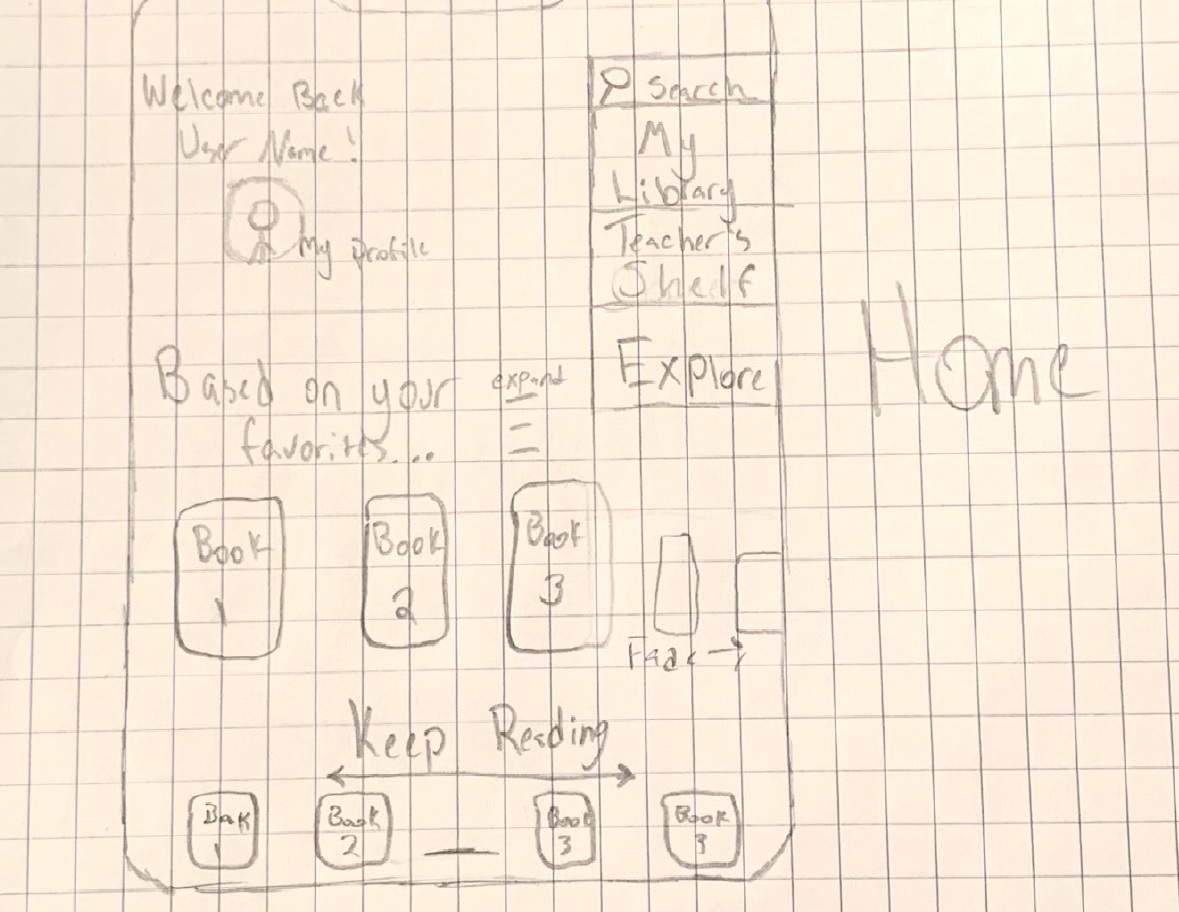 Welcome Back
User Name!
My profile
Search
My
Library
Teacher's
Shelf
Explore
Home
Based on your
favorites...
expand
Book
1
Book
2
Book
3
Fade →
Keep Reading
Book
1
Book
2
Book
3
Book
3